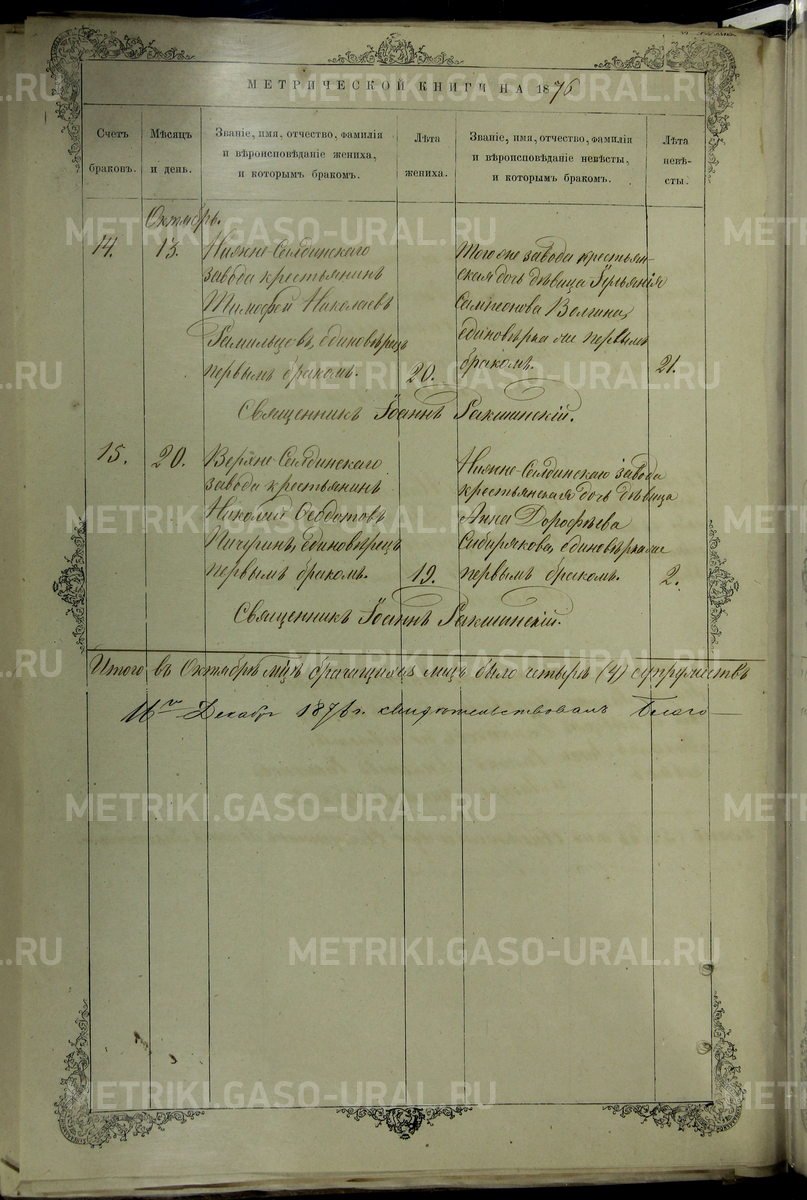 МЕТРИЧЕСКОЙ КНИГИ НА 1876
Счетъ браковъ.
Мѣсяцъ и день.
Званіе, имя, отчество, фамилія и вѣроисповѣданіе жениха, и которымъ бракомъ.
Лѣта жениха.
Званіе, имя, отчество, фамилія и вѣроисповѣданіе невѣсты, и которымъ бракомъ.
Лѣта невѣсты.
Октябрь.
14.
13.
Нижне-Салдинскаго
завода крестьянинъ
Тимофей Николаевъ
единовѣрецъ
первымъ бракомъ.
20.
Того же завода крестьян-
ская дочь дѣвица
Волгина,
единовѣрка же первымъ
бракомъ.
21.
Священникъ Іоаннъ
15.
20.
Верхне-Салдинскаго
завода крестьянинъ
Николай Ѳеодотовъ
Пичугинъ, единовѣрецъ
первымъ бракомъ.
19.
Нижне-Салдинскаго завода
крестьянская дочь дѣвица
Анна Дорофѣева
Сибирякова, единовѣрка же
первымъ бракомъ.
2.
Священникъ Іоаннъ
Итого въ Октябрѣ мцѣ брачащихся лицъ было четыре (4) супружествъ
16го Декабр 1876 г. свидѣтельствовалъ Благо-
METRIKI.GASO-URAL.RU